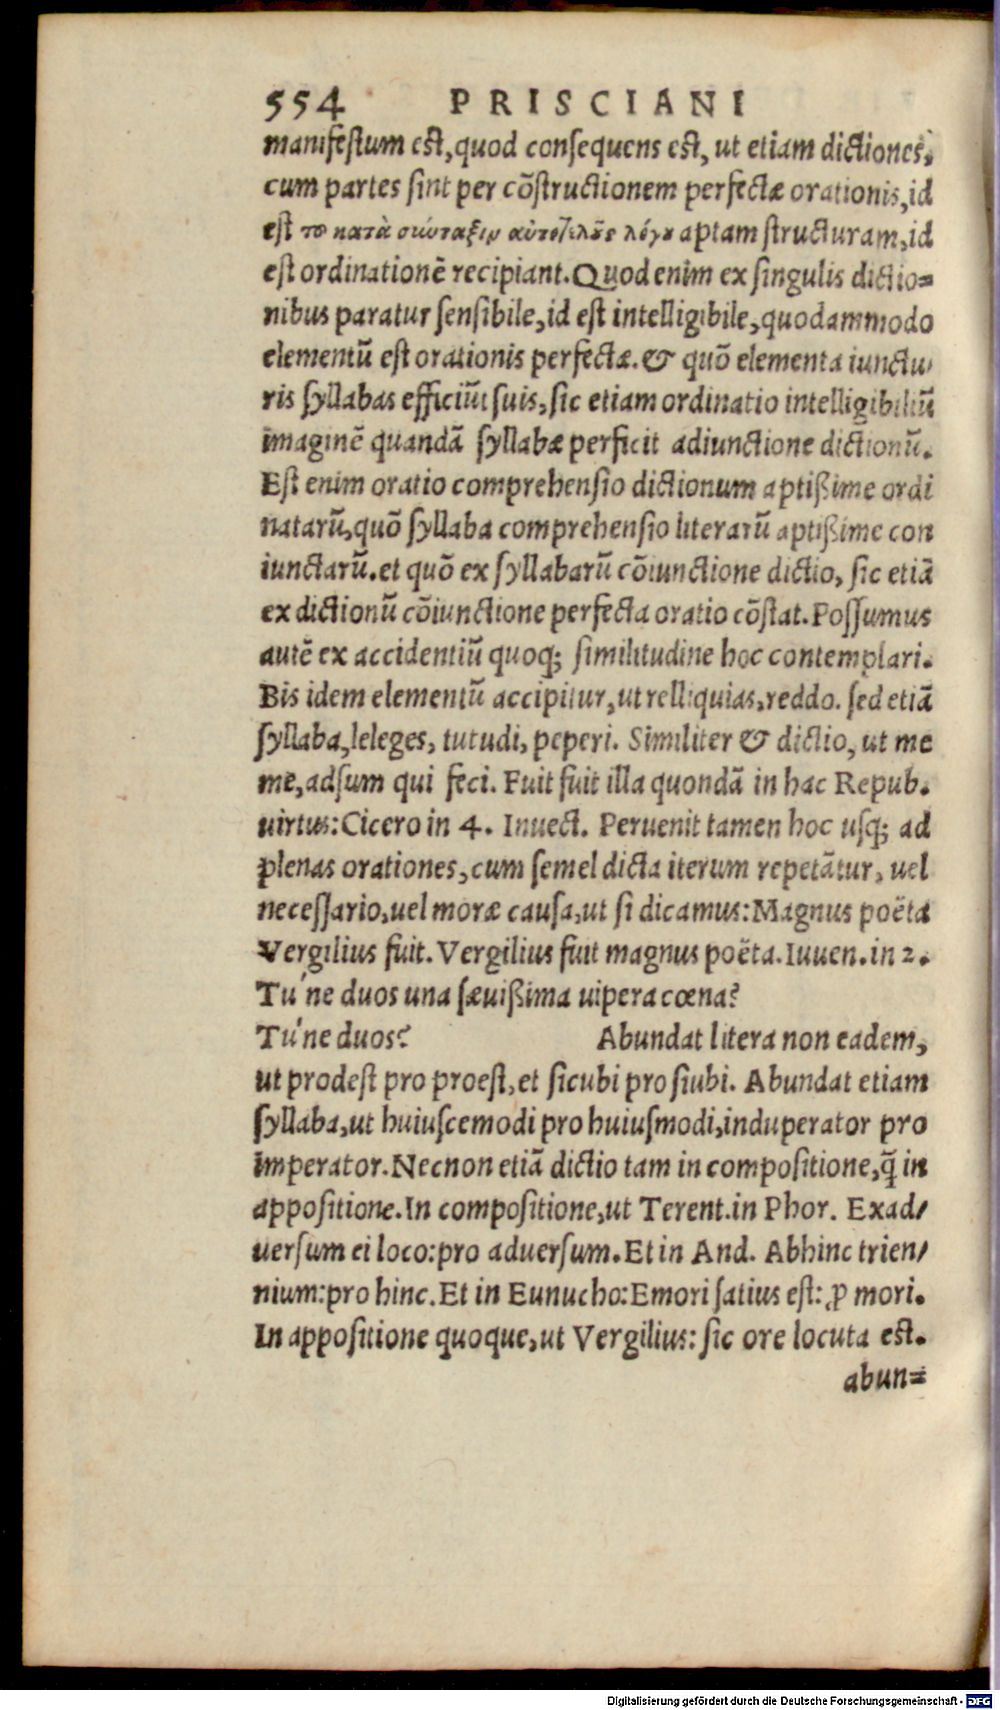 554 PRISCIANI
manifestum est, quod consequens est, ut etiam dictiones,
cum partes sint per cõstructionem perfectæ orationis, id
est κατὰ σύνταξιν λόγου aptam structuram, id
est ordinationẽ recipiant. Quod enim ex singulis dictio=
nibus paratur sensibile, id est intelligibile, quodammodo
elementũ est orationis perfectæ. & quõ elementa iunctu/
ris syllabas efficiũt suis, sic etiam ordinatio intelligibiliũ
imaginẽ quandã syllabæ perficit adiunctione dictionũ.
Est enim oratio comprehensio dictionum aptißime ordi
natarũ, quõ syllaba comprehensio literarũ aptißime con
iunctarũ. et quõ ex syllabarũ cõiunctione dictio, sic etiã
ex dictionũ cõiunctione perfecta oratio cõstat. Possumus
autẽ ex accidentiũ quoq; similitudine hoc contemplari.
Bis idem elementũ accipitur, ut relliquias, reddo. sed etiã
syllaba, leleges, tutudi, peperi. Similiter & dictio, ut me
me, adsum qui feci. Fuit fuit illa quondã in hac Repub.
virtus: Cicero in 4. Inuect. Peruenit tamen hoc usq; ad
plenas orationes, cum semel dicta iterum repetãtur, uel
necessario, uel moræ causa, ut si dicamus: Magnus poëta
Vergilius fuit. Vergilius fuit magnus poëta. Iuuen. in 2.
Tu'ne duos una sæuißima uipera cœna?
Tu'ne duos? Abundat litera non eadem,
ut prodest pro proest, et sicubi pro siubi. Abundat etiam
syllaba, ut huiuscemodi pro huiusmodi, induperator pro
imperator. Necnon etiã dictio tam in compositione, q̃ in
appositione. In compositione, ut Terent. in Phor. Exad/
uersum ei loco: pro aduersum. Et in And. Abhinc trien/
nium: pro hinc. Et in Eunucho: Emori satius est: ꝓ mori.
In appositione quoque, ut Vergilius: sic ore locuta est.
abun=
Digitalisierung gefördert durch die Deutsche Forschungsgemeinschaft - DFG